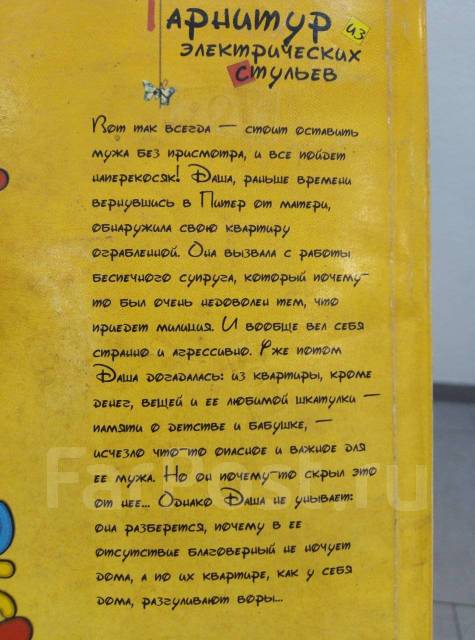 Гарнитур из
электрических
стульев
Вот так всегда — стоит оставить
мужа без присмотра, и все пойдет
наперекосяк! Даша, раньше времени
вернувшись в Питер от матери,
обнаружила свою квартиру
ограбленной. Она вызвала с работы
беспечного супруга, который почему-
то был очень недоволен тем, что
приедет милиция. И вообще вел себя
странно и агрессивно. Уже потом
Даша догадалась: из квартиры, кроме
денег, вещей и ее любимой шкатулки —
памяти о детстве и бабушке, —
исчезло что-то опасное и важное для
ее мужа. Но он почему-то скрыл это
от нее... Однако Даша не унывает:
она разберется, почему в ее
отсутствие благоверный не ночует
дома, а по их квартире, как у себя
дома, разгуливают воры...